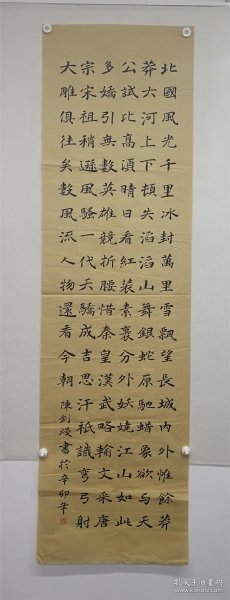 北國風光千里冰封萬里雪飄望長城內外惟餘莽
莽大河上下頓失滔滔山舞銀蛇原馳蠟象欲与天
公試比高須晴日看紅裝素裹分外妖嬈江山如此
多嬌引無數英雄競折腰惜秦皇漢武略輸文采唐
宗宋祖稍遜風騷一代天驕成吉思汗祇識彎弓射
大雕俱往矣數風流人物還看今朝 陳劍書於辛卯年
孔夫子旧书网